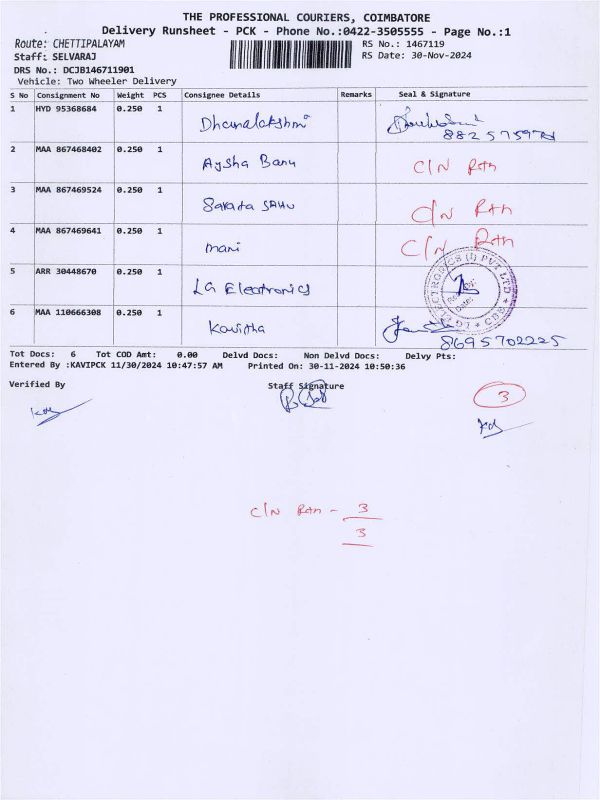 THE PROFESSIONAL COURIERS, COIMBATORE
Delivery Runsheet - PCK - Phone No.:0422-3505555 - Page No.:1
Route: CHETTIPALAYAM RS No.: 1467119
Staff: SELVARAJ RS Date: 30-Nov-2024
DRS No.: DCJB146711901
Vehicle: Two Wheeler Delivery
S No Consignment No Weight PCS Consignee Details Remarks Seal & Signature
1 HYD 95368684 0.250 1 Dhanalakshmi
2 MAA 867468402 0.250 1 Aysha Banu C/N Rtn
3 MAA 867469524 0.250 1 Sarata SAHU C/N Rtn
4 MAA 867469641 0.250 1 mani C/N Rtn
5 ARR 30448670 0.250 1 LG Electronics
6 MAA 110666308 0.250 1 Kavitha
8695702225
Tot Docs: 6 Tot COD Amt: 0.00 Delvd Docs: Non Delvd Docs: Delvy Pts:
Entered By :KAVIPCK 11/30/2024 10:47:57 AM Printed On: 30-11-2024 10:50:36
Verified By Staff Signature
3
C/N Rtn - 3
3